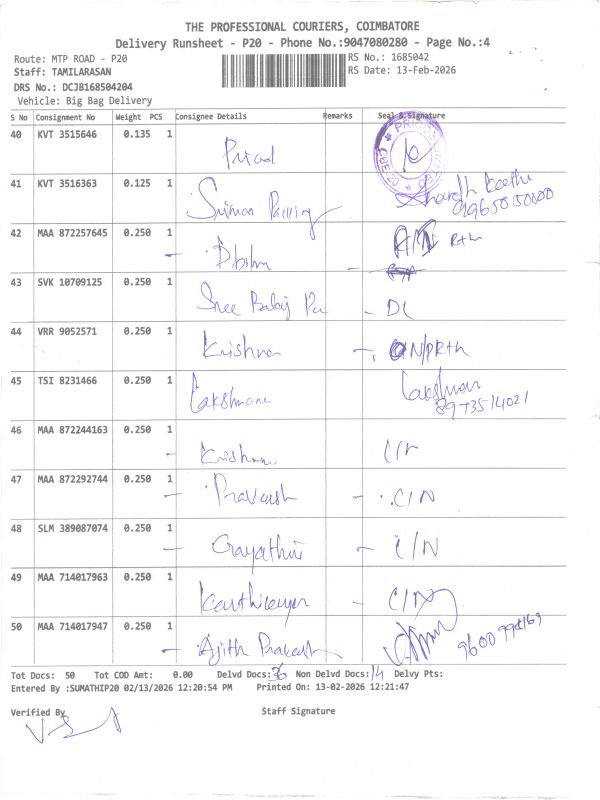 THE PROFESSIONAL COURIERS, COIMBATORE
Delivery Runsheet - P20 - Phone No.:9047080280 - Page No.:4
Route: MTP ROAD - P20 RS No.: 1685042
Staff: TAMILARASAN RS Date: 13-Feb-2026
DRS No.: DCJB168504204
Vehicle: Big Bag Delivery
S No Consignment No Weight PCS Consignee Details Remarks Seal & Signature
40 KVT 3515646 0.135 1
41 KVT 3516363 0.125 1
42 MAA 872257645 0.250 1
43 SVK 10709125 0.250 1 Sree Balaj - DL
44 VRR 9052571 0.250 1 Krishna
45 TSI 8231466 0.250 1 Lakshmana Lakshman
8973514021
46 MAA 872244163 0.250 1
47 MAA 872292744 0.250 1 - Prakash - C/N
48 SLM 389087074 0.250 1 - Gayathri - C/N
49 MAA 714017963 0.250 1 Karthikeyan - C/N
50 MAA 714017947 0.250 1 - Ajith Prakash
Tot Docs: 50 Tot COD Amt: 0.00 Delvd Docs: 36 Non Delvd Docs: 14 Delvy Pts:
Entered By :SUMATHIP20 02/13/2026 12:20:54 PM Printed On: 13-02-2026 12:21:47
Verified By Staff Signature